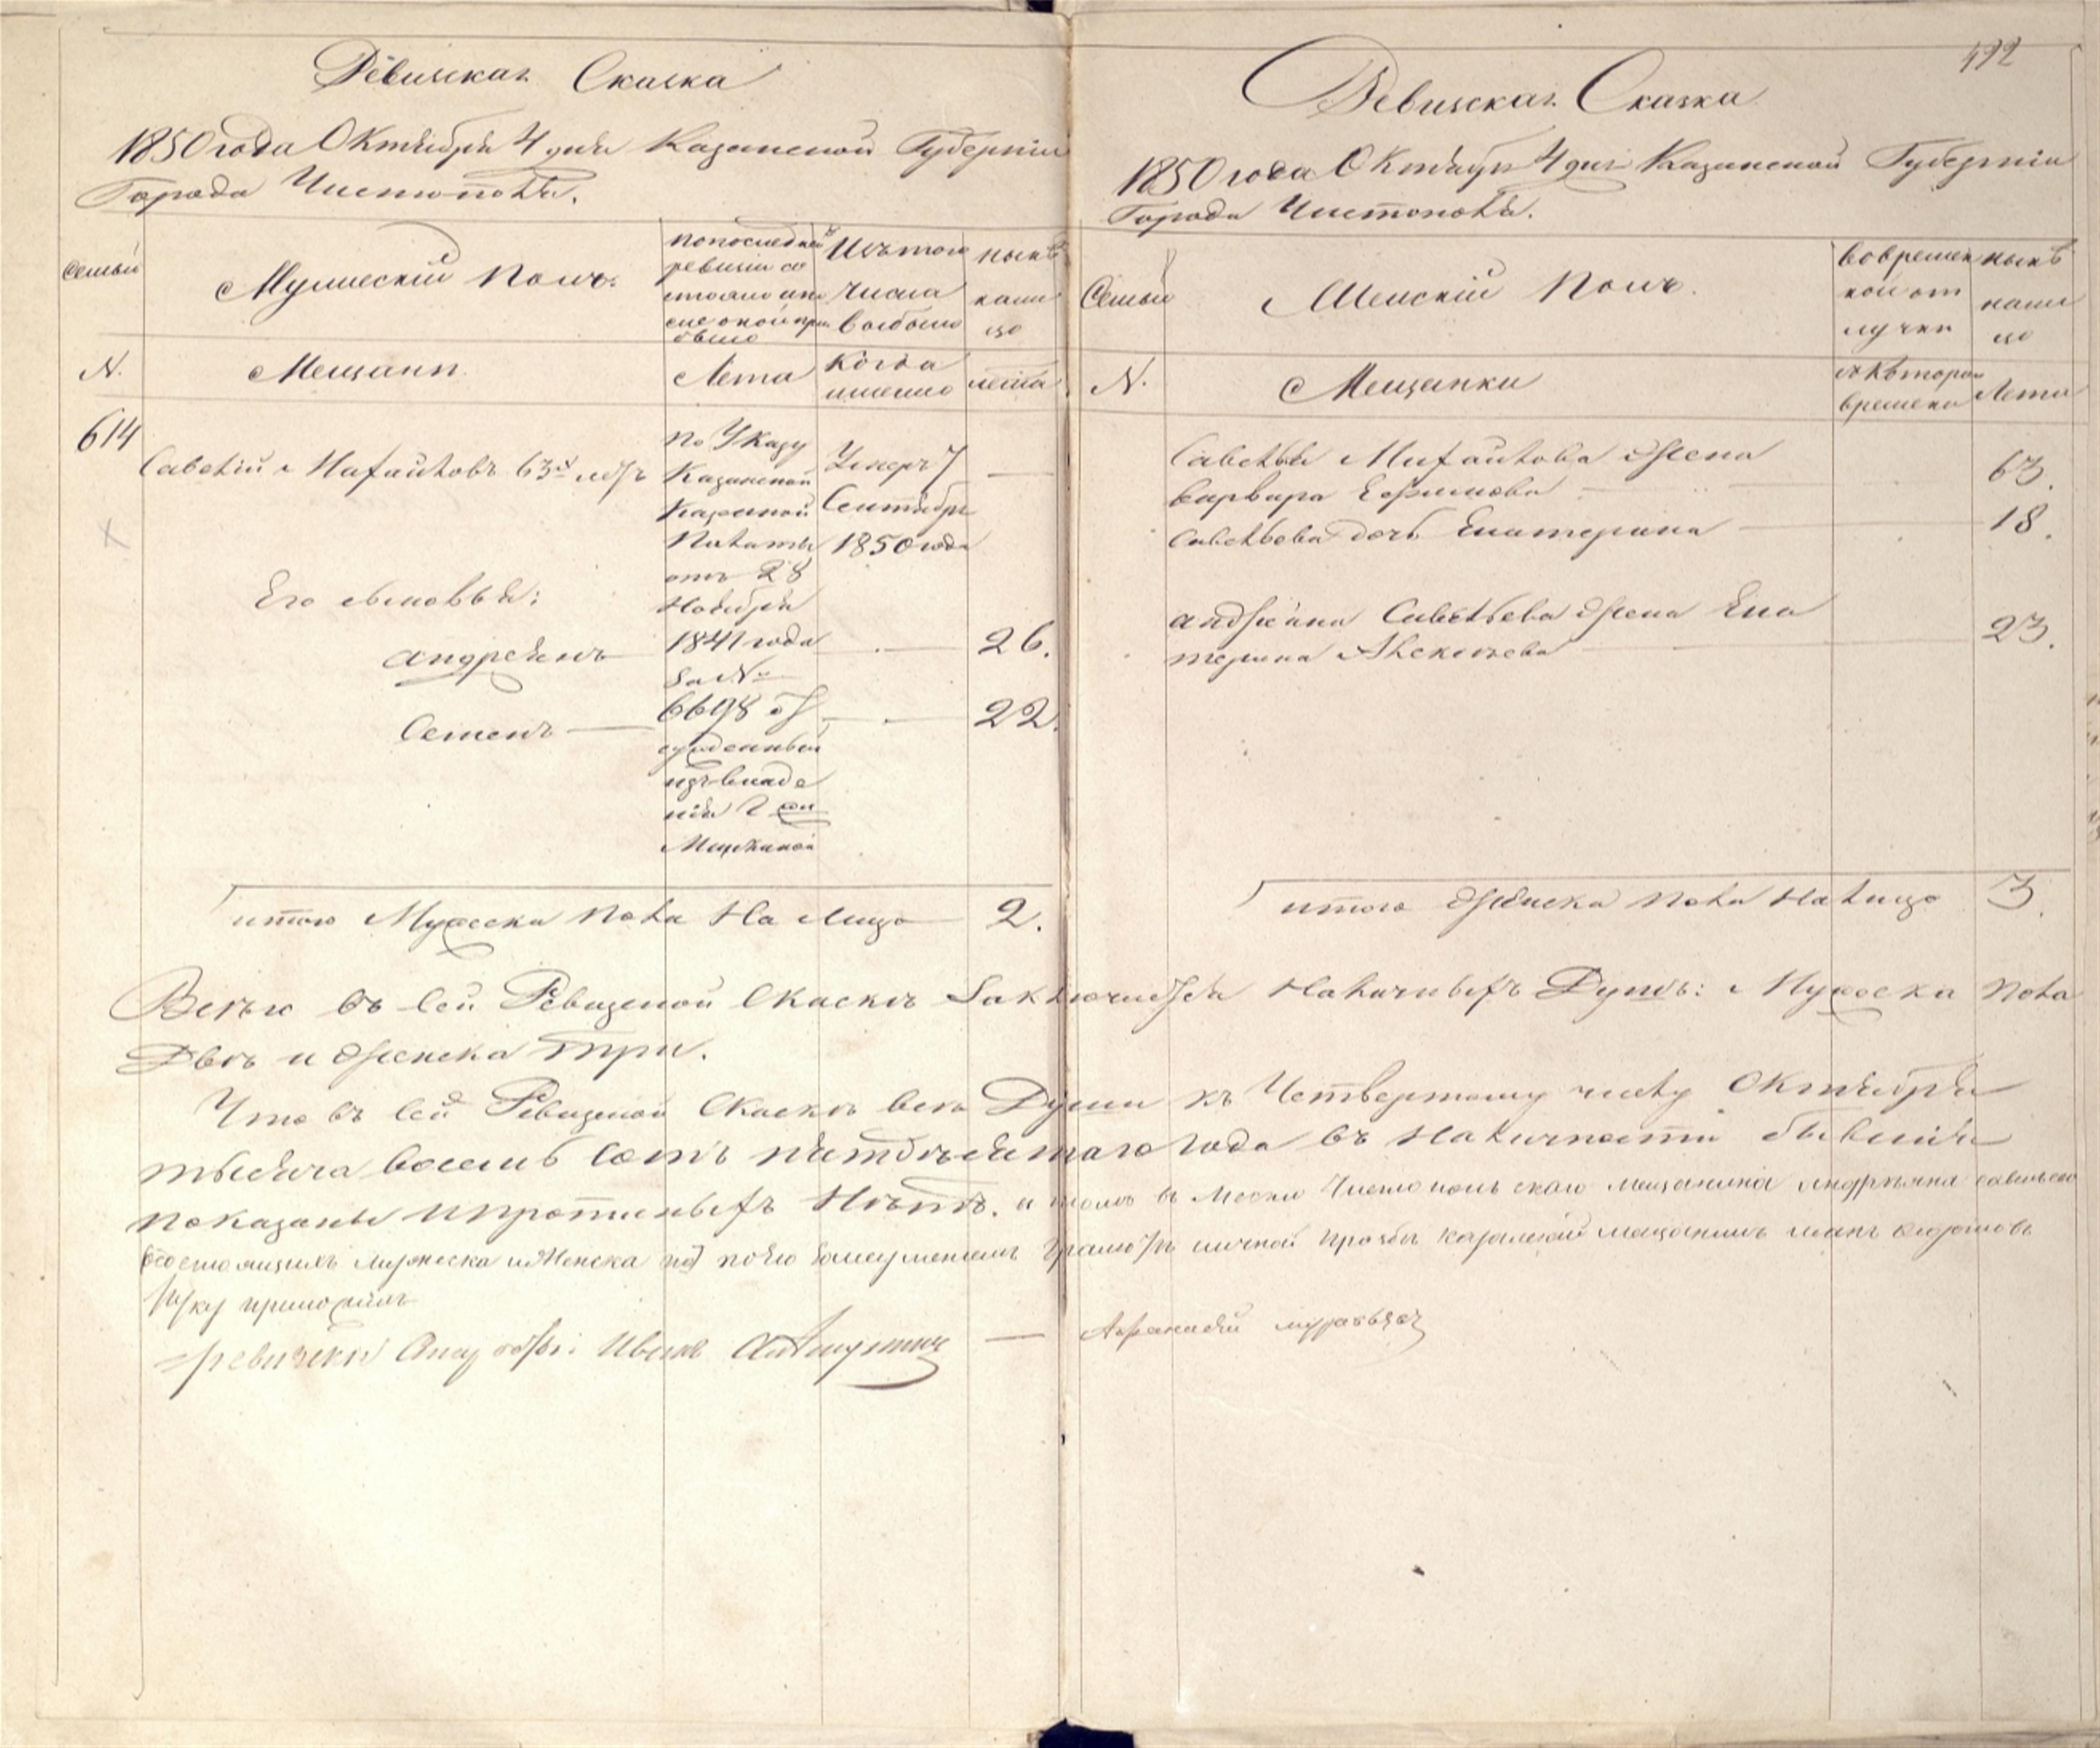 Ревизская Сказка
1850 года Октября 4 дня Казанской Губернии
Города Чистополя.
Семьи
Мужеской полъ.
по последней
ревизіи со
стояло и по
сле оной при
было
Изъ того
числа
выбыло
ныне
на ли
цо
N.
Мещанъ
Лета
Когда
именно
лета
614
Савелій Михайловъ 63х летъ
По Указу
Казанской
Казенной
Палаты
отъ 28
Ноября
1841 года
за №
6698
изъ владе
нія
Умеръ 7
Сентября
1850 года
Его сыновья:
Андреянъ
26.
Семенъ
22.
итого Мужеска пола На лицо 2.
492
Ревизская Сказка
1850 года Октября 4 дня Казанской Губерніи
Города Чистополя.
Семьи
Женскій полъ.
во времен
ной от
лучки
ныне
на ли
цо
N.
Мещанки
съ котораго
времени
Лета
Савелья Михайлова жена
Варвара Ефимова
63.
Савельева дочь Екатерина
18.
Андреяна Савельева жена Ека
терина Алексеева
23.
итого женска пола На лицо 3.
Всего въ сей Ревизской Сказкѣ Заключается Наличныхъ Душъ: Мужеска пола
Двѣ и женска три.
Что въ сей Ревизской Сказкѣ все Души къ Четвертому числу Октября
тысяча восемь сотъ пятдесятаго года въ Наличности бывшія
показаны и прописныхъ Нѣтъ. въ Чистопольскаго мещанина Андреяна Савельева
мужеска и Женска по личной прозбы мещанинъ
руку приложилъ
Иванъ — Афанасій